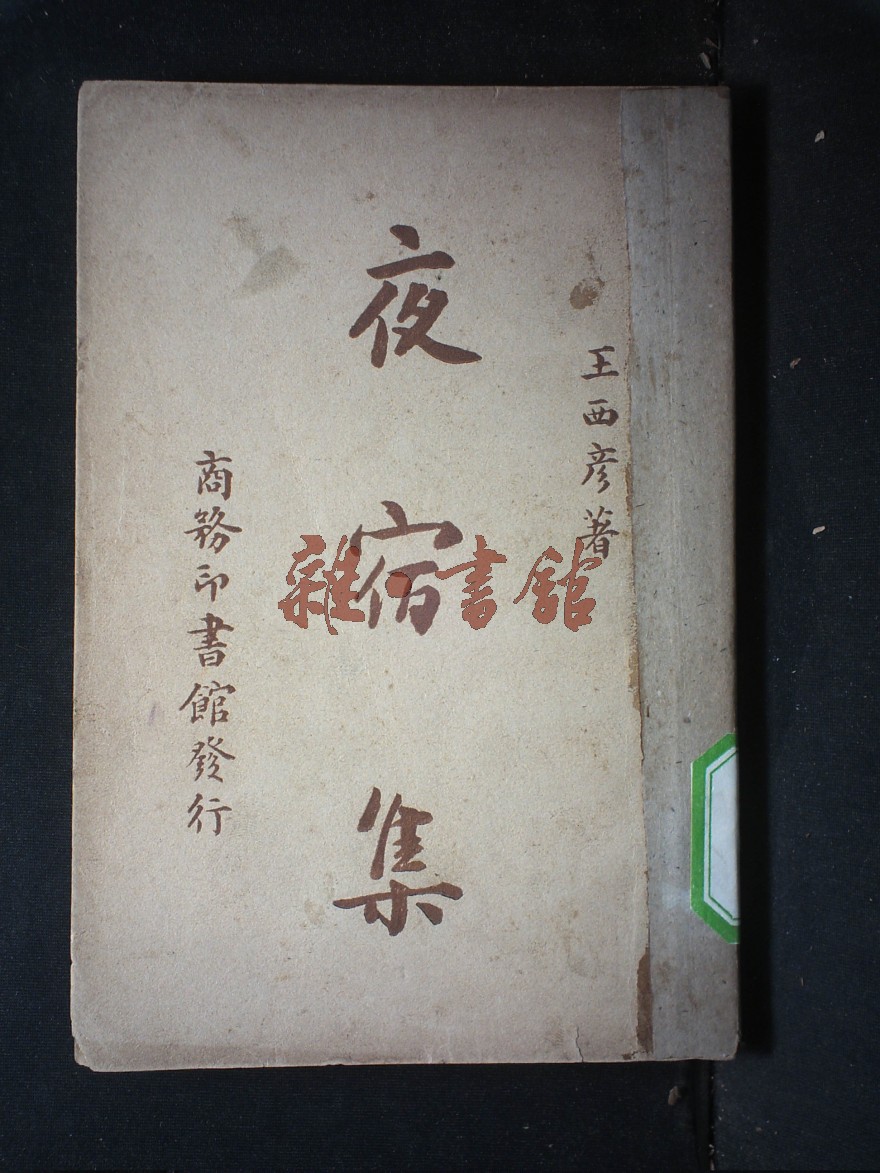 王西彦著
夜宿集
商務印書館發行
雜書館